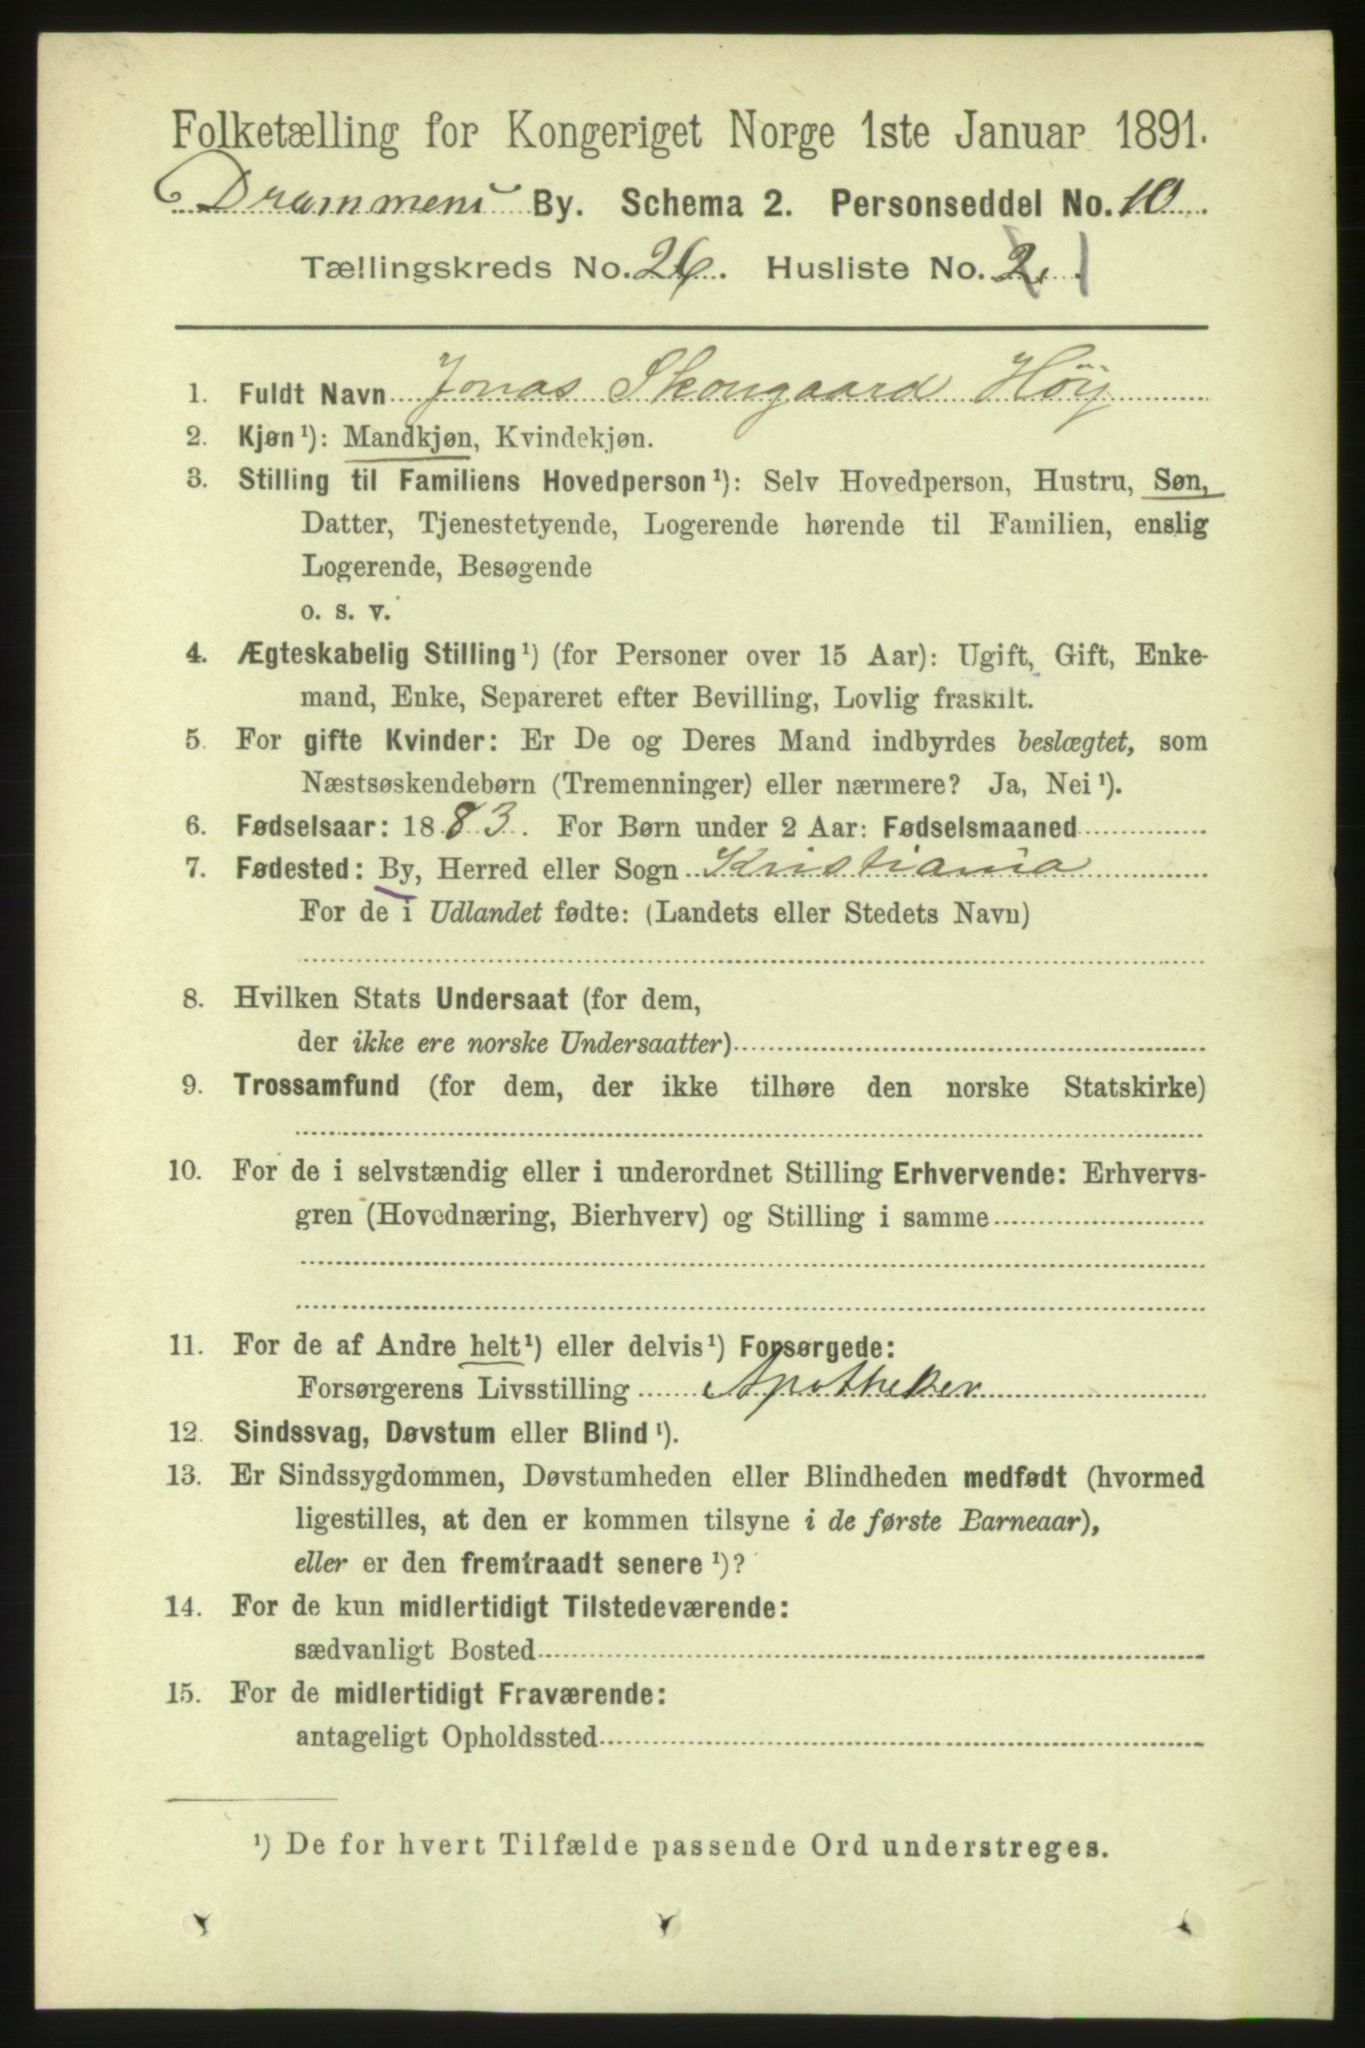 Folketælling for Kongeriget Norge 1ste Januar 1891.
Drammens By. Schema 2. Personseddel No. 10
Tællingskreds No. 26. Husliste No. 2. 1
1. Fuldt Navn Jonas Skougaard Höy
2. Kjøn¹): Mandkjøn, Kvindekjøn.
3. Stilling til Familiens Hovedperson¹): Selv Hovedperson, Hustru, Søn,
Datter, Tjenestetyende, Logerende hørende til Familien, enslig
Logerende, Besøgende
o. s. v.
4. Ægteskabelig Stilling¹) (for Personer over 15 Aar): Ugift, Gift, Enke-
mand, Enke, Separeret efter Bevilling, Lovlig fraskilt.
5. For gifte Kvinder: Er De og Deres Mand indbyrdes beslægtet, som
Næstsøskendebørn (Tremenninger) eller nærmere? Ja, Nei¹).
6. Fødselsaar: 1883. For Børn under 2 Aar: Fødselsmaaned
7. Fødested: By, Herred eller Sogn Kristiania
For de i Udlandet fødte: (Landets eller Stedets Navn)
8. Hvilken Stats Undersaat (for dem,
der ikke ere norske Undersaatter)
9. Trossamfund (for dem, der ikke tilhøre den norske Statskirke)
10. For de i selvstændig eller i underordnet Stilling Erhvervende: Erhvervs-
gren (Hovednæring, Bierhverv) og Stilling i samme
11. For de af Andre helt¹) eller delvis¹) Forsørgede:
Forsørgerens Livsstilling Apotheker
12. Sindssvag, Døvstum eller Blind¹).
13. Er Sindssygdommen, Døvstumheden eller Blindheden medfødt (hvormed
ligestilles, at den er kommen tilsyne i de første Barneaar),
eller er den fremtraadt senere¹)?
14. For de kun midlertidigt Tilstedeværende:
sædvanligt Bosted
15. For de midlertidigt Fraværende:
antageligt Opholdssted
¹) De for hvert Tilfælde passende Ord understreges.